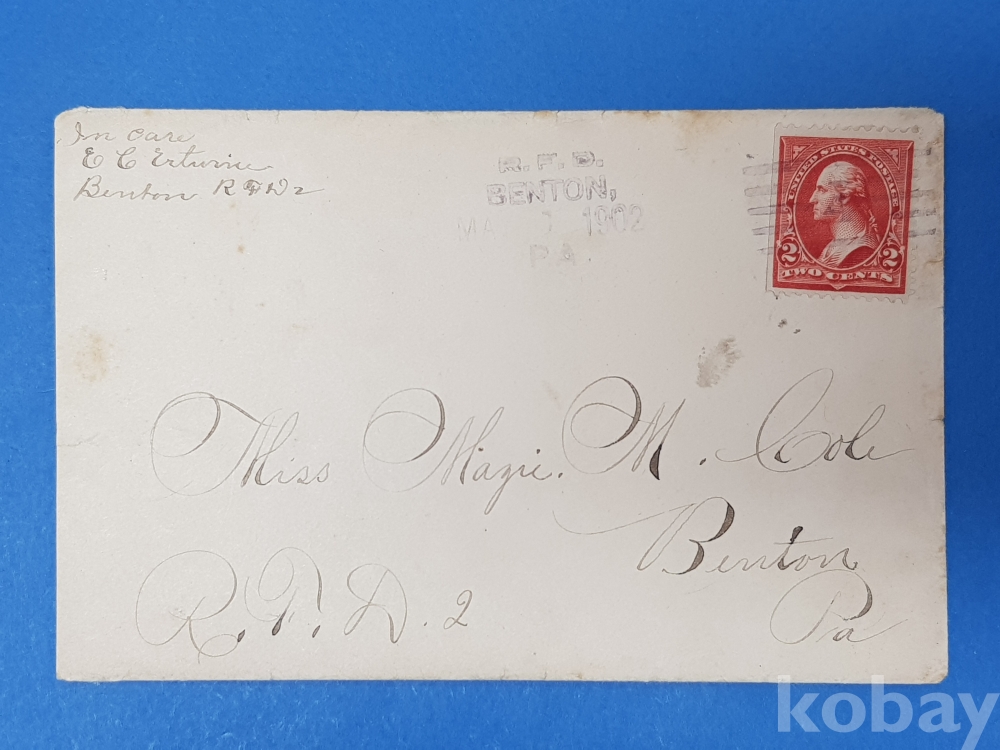 In care
E C
Benton R F D 2
R.F.D.
BENTON,
MA 1902
PA.
UNITED STATES POSTAGE
2 2
TWO CENTS
Miss Magie. M. Cole
Benton
Pa
R. F. D. 2
kobay